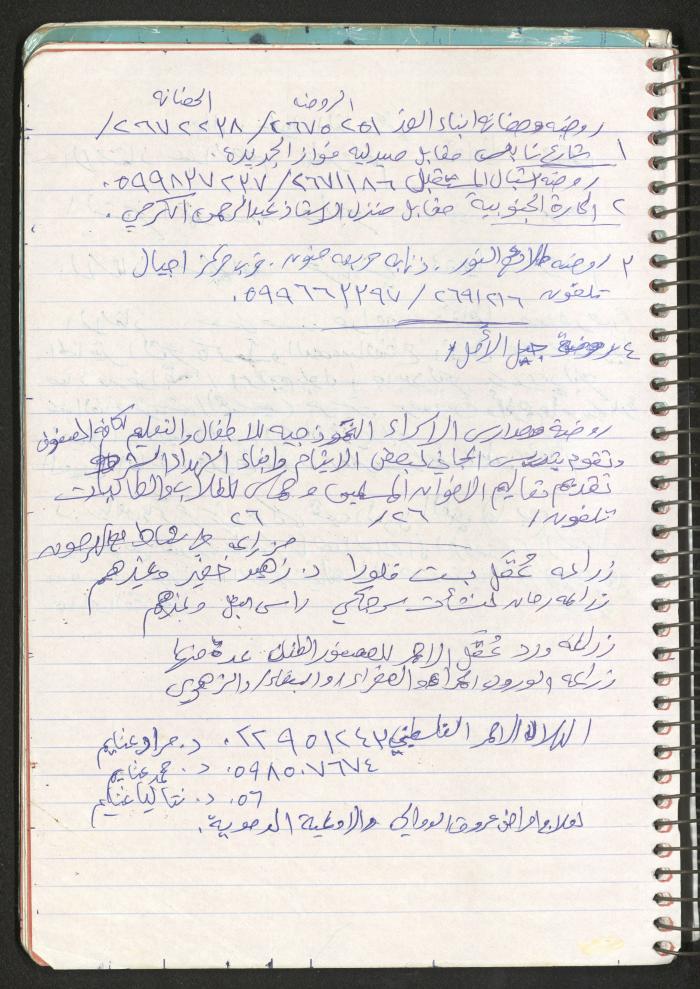 الروضه الحضانه
روضه وحضانه ابناء الغد ٢٦٧٥٢٥١/ ٢٦٧٢٢٣٨/
١ شارع نابلس مقابل صيدليه فواز الجديدة.
روضه اشبال المستقبل ٢٦٧١١٨٦/ ٠٥٩٩٨٣٧٢٣٧
٢ الحارة الجنوبية مقابل منزل الاستاذ عبدالرحمن الكرمي.
٣ روضه طلائع النور. ذنابه قرب مركز اجيال
تلفون ٢٦٩١٢١٦ / ٠٥٩٩٦٦٣٢٩٧.
٤ روضة جيل الأمل /
روضه ومدارس الاسراء النموذجيه للاطفال والتعليم لكافة الصفوف
وتقوم بتدريس المجاني لبعض الايتام وابناء الشهداء
تقديم وتعاليم الاخوان المسلمين وحماس للطلاب والطالبات
تلفون / ٢٦ / ٢٦
زراعه
زراعه حُقَل بيت فلورا د. زهير خضر وغيرهم
زراعه رمان
زراعه ورد حُقَل الاحمر عدة منها
زراعه الورود الحمراء والصفراء والبيضاء والزهري
الهلال الاحمر الفلسطيني ٠٢٢٩٥١٢٤٣ د. مراد غنايم
٠٥٩٨٥٠٧٦٧٤ د. محمد غنايم
٠٥٦ د. نتاليا غنايم
لعلاج امراض عروق الدوالي والاوعية الدموية.